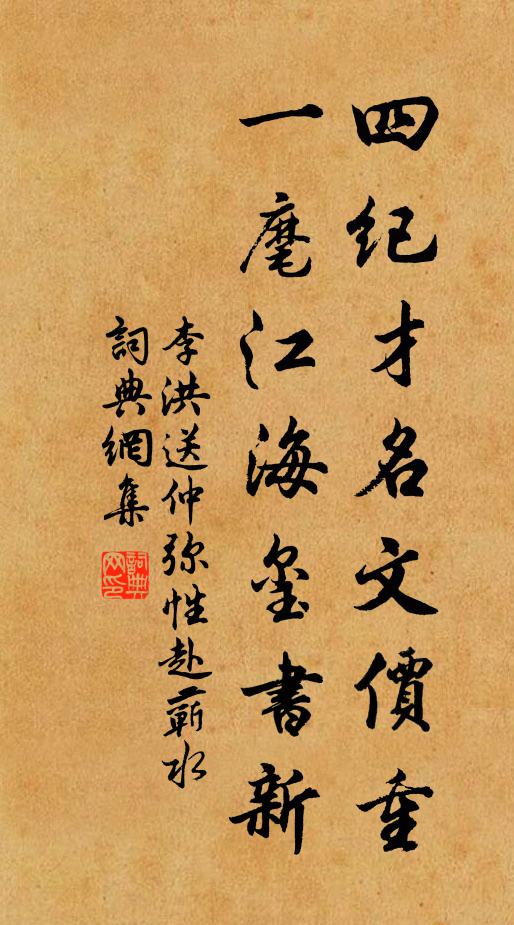 四紀才名文價重
一麾江海璽書新
李洪送仲弥性赴蘄水
詞典網集
詞典
网印